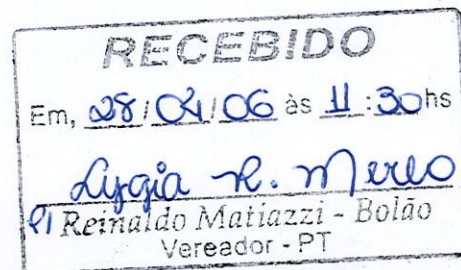 RECEBIDO
Em, 28/04/06 às 11:30hs
Lygia R. Merlo
P/ Reinaldo Matiazzi - Bolão
Vereador - PT